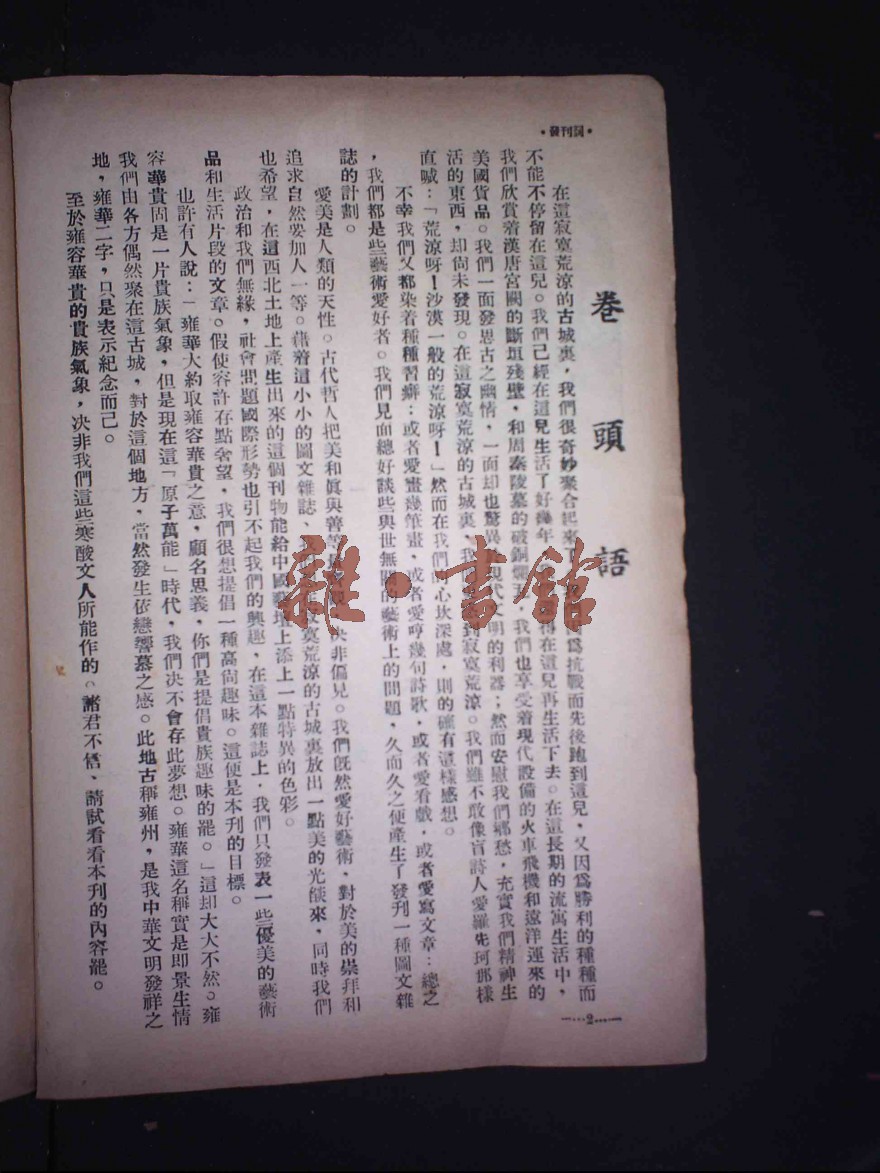 ·發刊詞·
卷頭語
在這寂寞荒涼的古城裏，我們很奇妙聚合起來了。我們因爲抗戰而先後跑到這兒，又因爲勝利的種種而
不能不停留在這兒。我們已經在這兒生活了好幾年得在這兒再生活下去。在這長期的流寓生活中，
我們欣賞着漢唐宮闕的斷垣殘壁，和周秦陵墓的破銅爛瓦，我們也享受着現代設備的火車飛機和遠洋運來的
美國貨品。我們一面發思古之幽情，一面却也驚異現代文明的利器；然而安慰我們鄉愁，充實我們精神生
活的東西，却尙未發現。在這寂寞荒涼的古城裏，我到寂寞荒涼。我們雖不敢像盲詩人愛羅先珂那樣
直喊：「荒涼呀！沙漠一般的荒涼呀！」然而在我們的心坎深處，則的確有這樣感想。
不幸我們又都染着種種習癖：或者愛畫幾筆畫，或者愛哼幾句詩歌，或者愛看戲，或者愛寫文章：總之
，我們都是些藝術愛好者。我們見面總好談些與世無關的藝術上的問題，久而久之便產生了發刊一種圖文雜
誌的計劃。
愛美是人類的天性。古代哲人把美和眞與善等量決非偏見。我們旣然愛好藝術，對於美的崇拜和
追求自然要加人一等。藉着這小小的圖文雜誌、我們在寂寞荒涼的古城裏放出一點美的光燄來，同時我們
也希望，在這西北土地上產生出來的這個刊物能給中國藝壇上添上一點特異的色彩。
政治和我們無緣，社會問題國際形勢也引不起我們的興趣，在這本雜誌上，我們只發表一些優美的藝術
品和生活片段的文章。假使容許存點奢望，我們很想提倡一種高尙趣味。這便是本刊的目標。
也許有人說：「雍華大約取雍容華貴之意，顧名思義，你們是提倡貴族趣味的罷。」這却大大不然。雍
容華貴固是一片貴族氣象，但是現在這「原子萬能」時代，我們決不會存此夢想。雍華這名稱實是卽景生情
我們由各方偶然聚在這古城，對於這個地方，當然發生依戀響慕之感。此地古稱雍州，是我中華文明發祥之
地，雍華二字，只是表示紀念而已。
至於雍容華貴的貴族氣象，决非我們這些寒酸文人所能作的。諸君不信、請試看看本刊的內容罷。
2
雜·書館